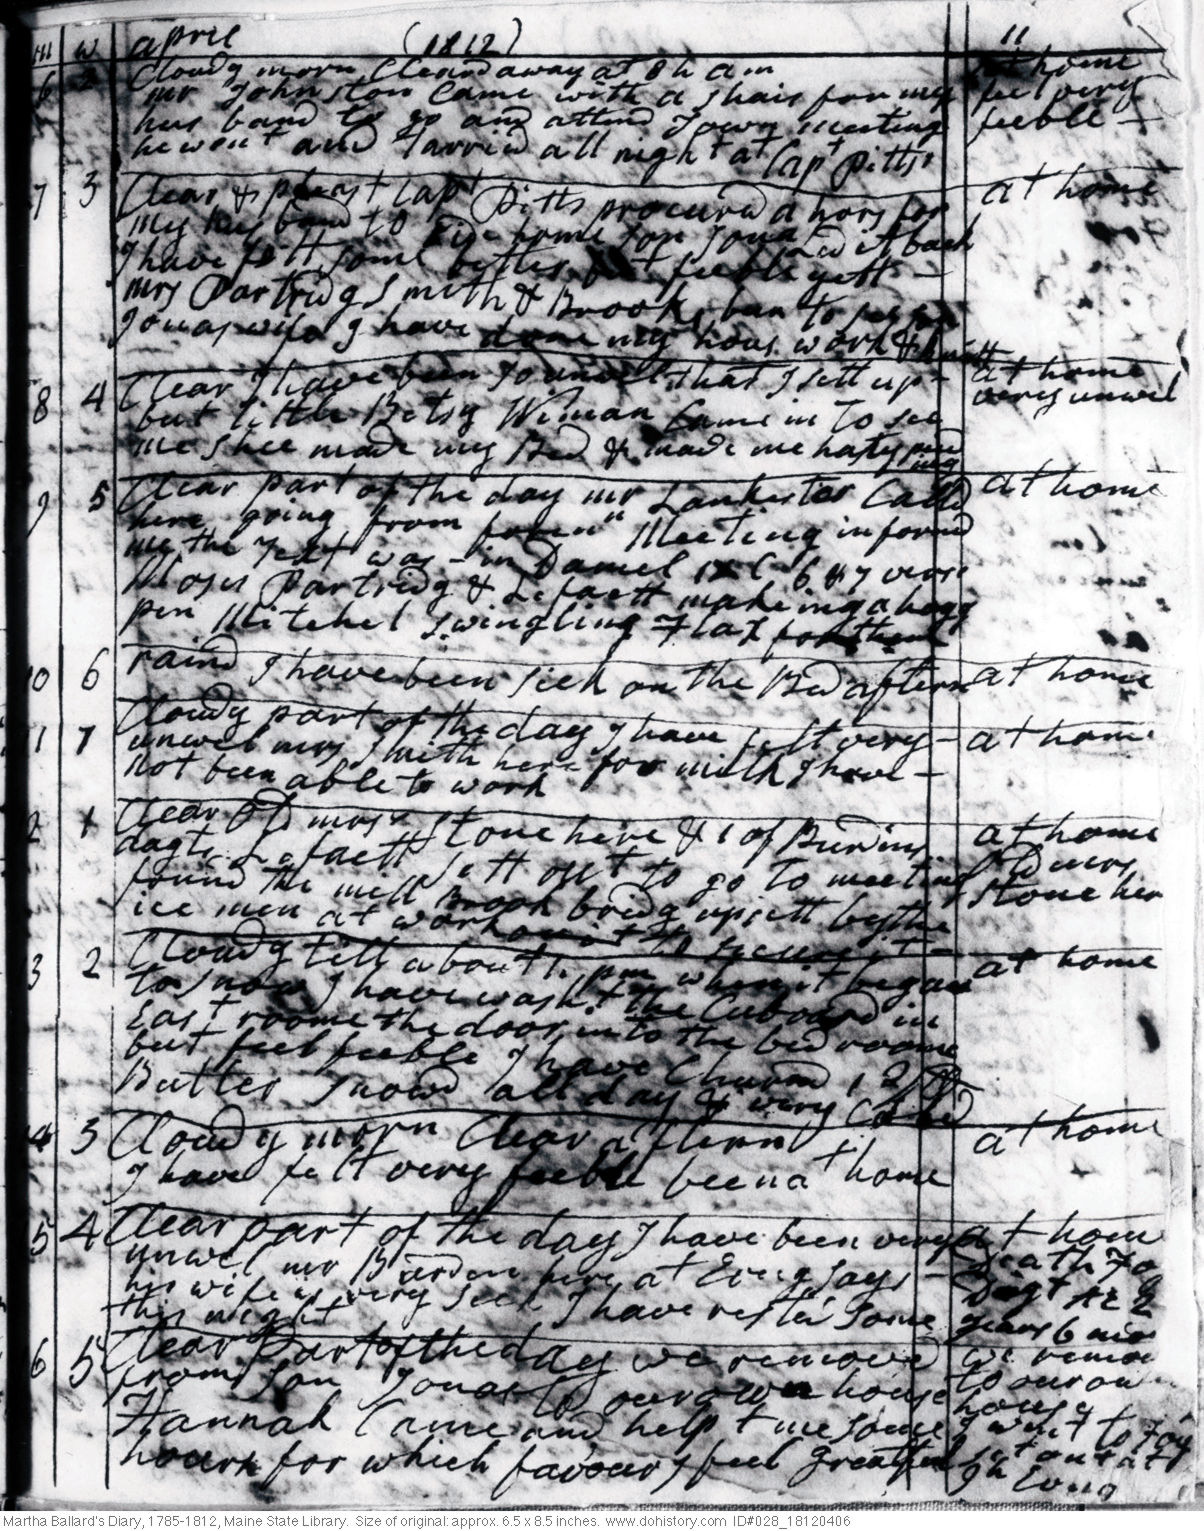 m w april (1812) 11
6 2 Cloudy morn Cleard away at 8 h a m at home
mr Johnston Came with a Shais for my feel very
hus band to go and attend Town meeting feeble –
he went and Tarried all night at Capt Pitts
7 3 Clear & pleast Capt Pitts procured a hors for at home
my hus band to ride home son Jona Led it back
I have felt some better but feeble yett –
mrs Partridg Smith & Brooks ban to see
Jonas wife I have done my hous work &
8 4 Clear I have been So unwel that I sett up – at home
but little Betsy Wiman Came in To see very unwel
me Shee made my Bed & made me hasty pud
ing
9 5 Clear part of the day mr Lankester Calld at home
here going from foren n Meeting informd
me the Text was – in Daniel C 6 & 7 vers
Moses Partridg & Lefaett makeing a hogg
pen Mitchel Swingling Flax for them
10 6 raind I have been sick on the Bed aftern at home
11 7 Cloudy part of the day I have felt very – at home
unwel mrs Smith here for milk I have –
not been able to work
12 1 Clear Old mrs Stone here & 1 of Burdins at home
dagts Lefaett sett out to go to meeting Old mrs
found the mill Brook bridg upsett by the Stone her
ice men at work to secure it –
13 2 Cloudy till about 1 pm when it began at home
to snow I have washt the Cuboard in
East roome the door into the bed roome
but feel feeble I have Churnd 12 lb
Butter Snowd all day & very Cold
14 3 Cloudy morn Clear aftern at home
I have felt very feeble been at home
15 4 Clear part of the day I have been very at home
unwel mr Burden here at Evng says – Death
his wife is very sick I have rested some Dagt AE 2
this night years 6 mo
16 5 Clear Part of the day we removd we remov
from son Jonas to our own house to our ow
Hannah Came and help t me some house
hours for which favour I feel Greatful
Evng
Martha Ballard's Diary, 1785-1812, Maine State Library. Size of original: approx. 6.5 x 8.5 inches. www.dohistory.com ID#028_18120406